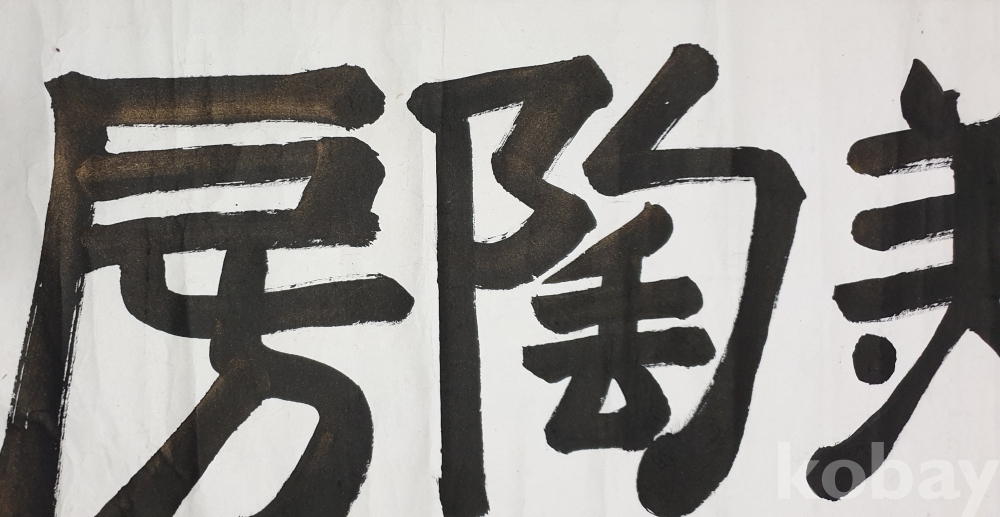 陶房
kobay